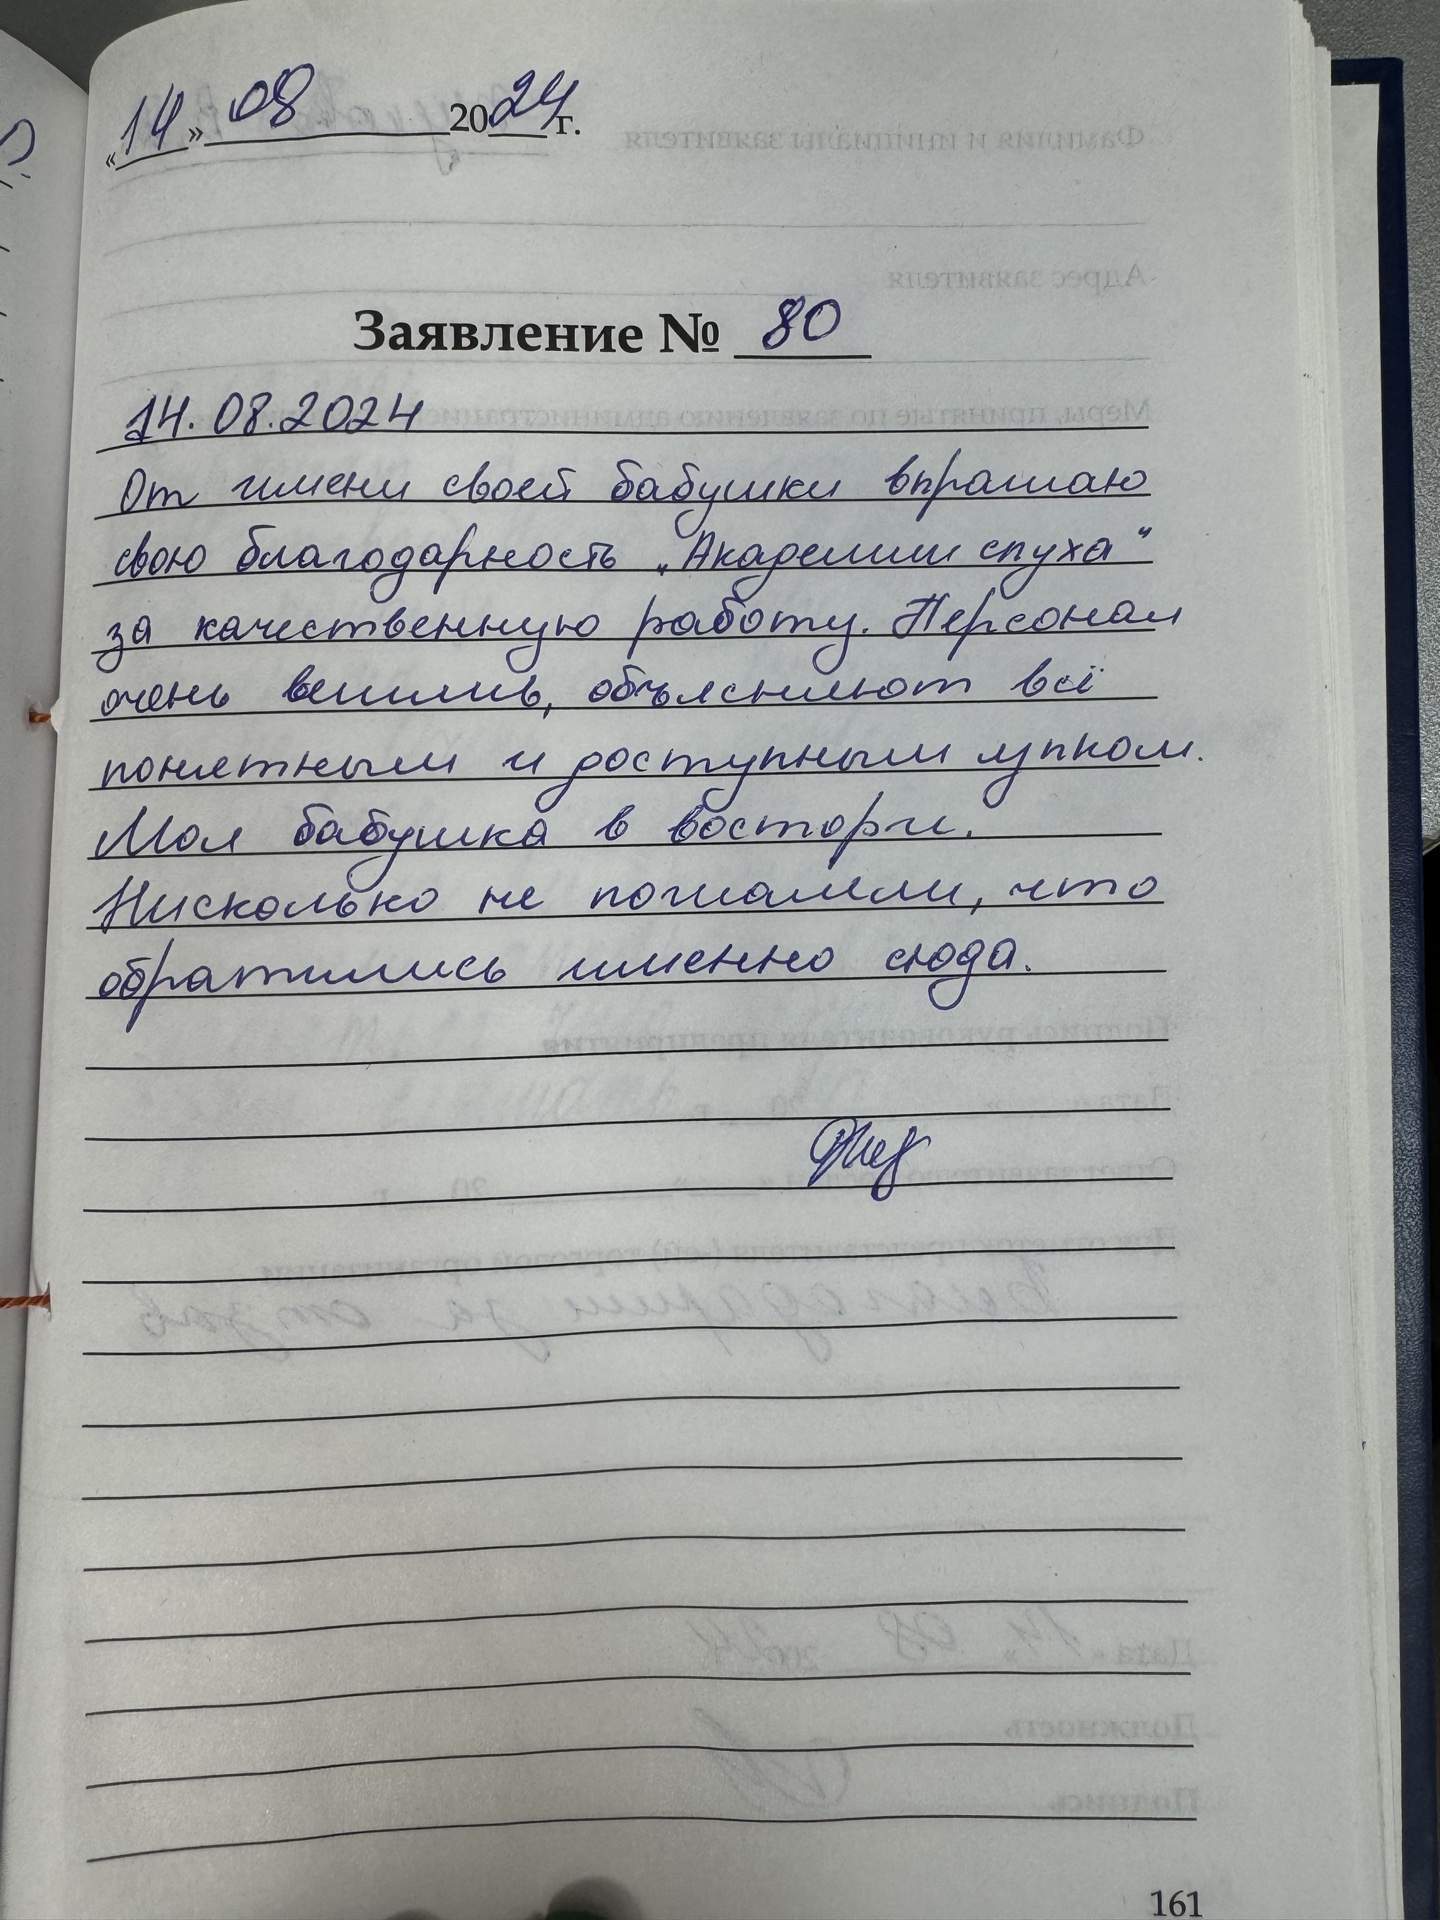 «14» 08 2024 г.
Заявление № 80
14.08.2024
От имени своей бабушки впрашаю
свою благодарность „Академии слуха"
за качественную работу. Персонал
очень вежлив, объясняют всё
понятным и доступным языком.
Моя бабушка в восторги.
Нисколько не пожалели, что
обратились именно сюда.
161